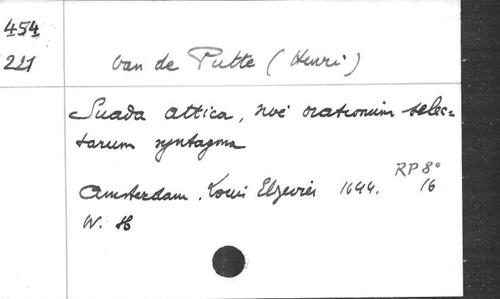 454
221
van de Putte (Henri)
Suada attica, sivé orationum selec-
tarum syntagma
Amsterdam. Louis Elzevier 1644.
RP 8°
16
W. H